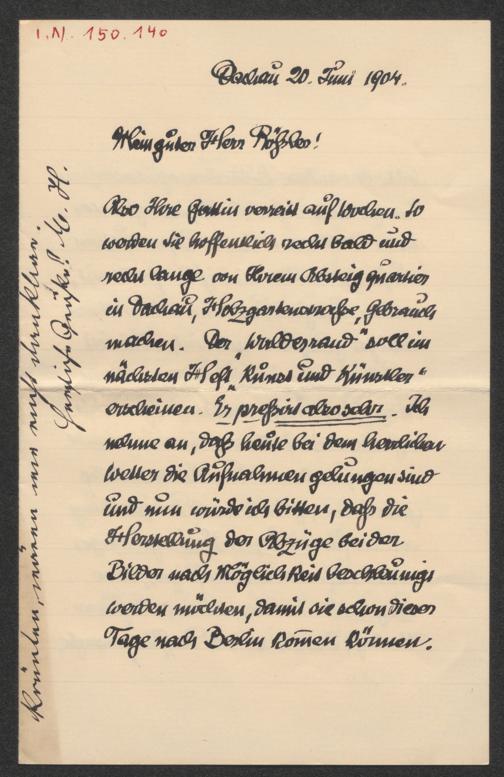 I.N. 150.140
Dachau 20. Juni 1904.
Mein guter Herr Rößler!
Also Ihre Gattin verreist auf Wochen. So
werden Sie hoffentlich recht bald und
recht lange von Ihrem Absteigquartier
in Dachau, Holzgartenstraße, Gebrauch
machen. Der "Waldesrand" soll im
nächsten Heft "Kunst und Künstler"
erscheinen. Er pressirt also sehr. Ich
nehme an, daß heute bei dem herrlichen
Wetter die Aufnahmen gelungen sind
und nun würde ich bitten, daß die
Herstellung der Abzüge beider
Bilder nach Möglichkeit beschleunigt
werden möchten, damit sie schon dieser
Tage nach Berlin kommen können.
wären wir recht dankbar.
Herzliche Grüße!